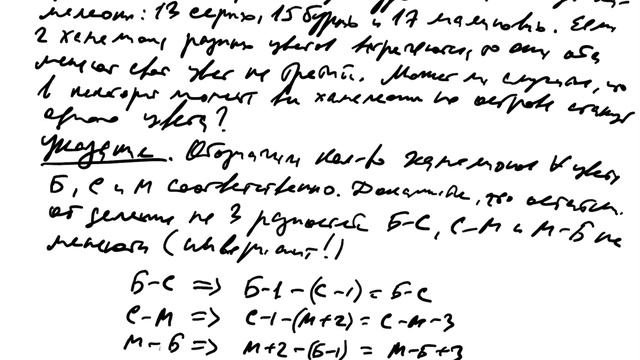 мелеон: 13 серых, 15 бурых и 17 малиновых. Если
2 хамелеона разных цветов встречаются, то они оба
меняют свой цвет на третий. Может ли случиться, что
в некоторый момент все хамелеоны на острове станут
одного цвета?
Указание. Обозначим кол-во хамелеонов ∀ цвета
Б, С и М соответственно. Докажите, что остатки
от деления на 3 разностей Б-С, С-М и М-Б не
меняются (инвариант!)
Б-С => Б-1-(С-1) = Б-С
С-М => С-1-(М+2) = С-М-3
М-Б => М+2-(Б-1) = М-Б+3